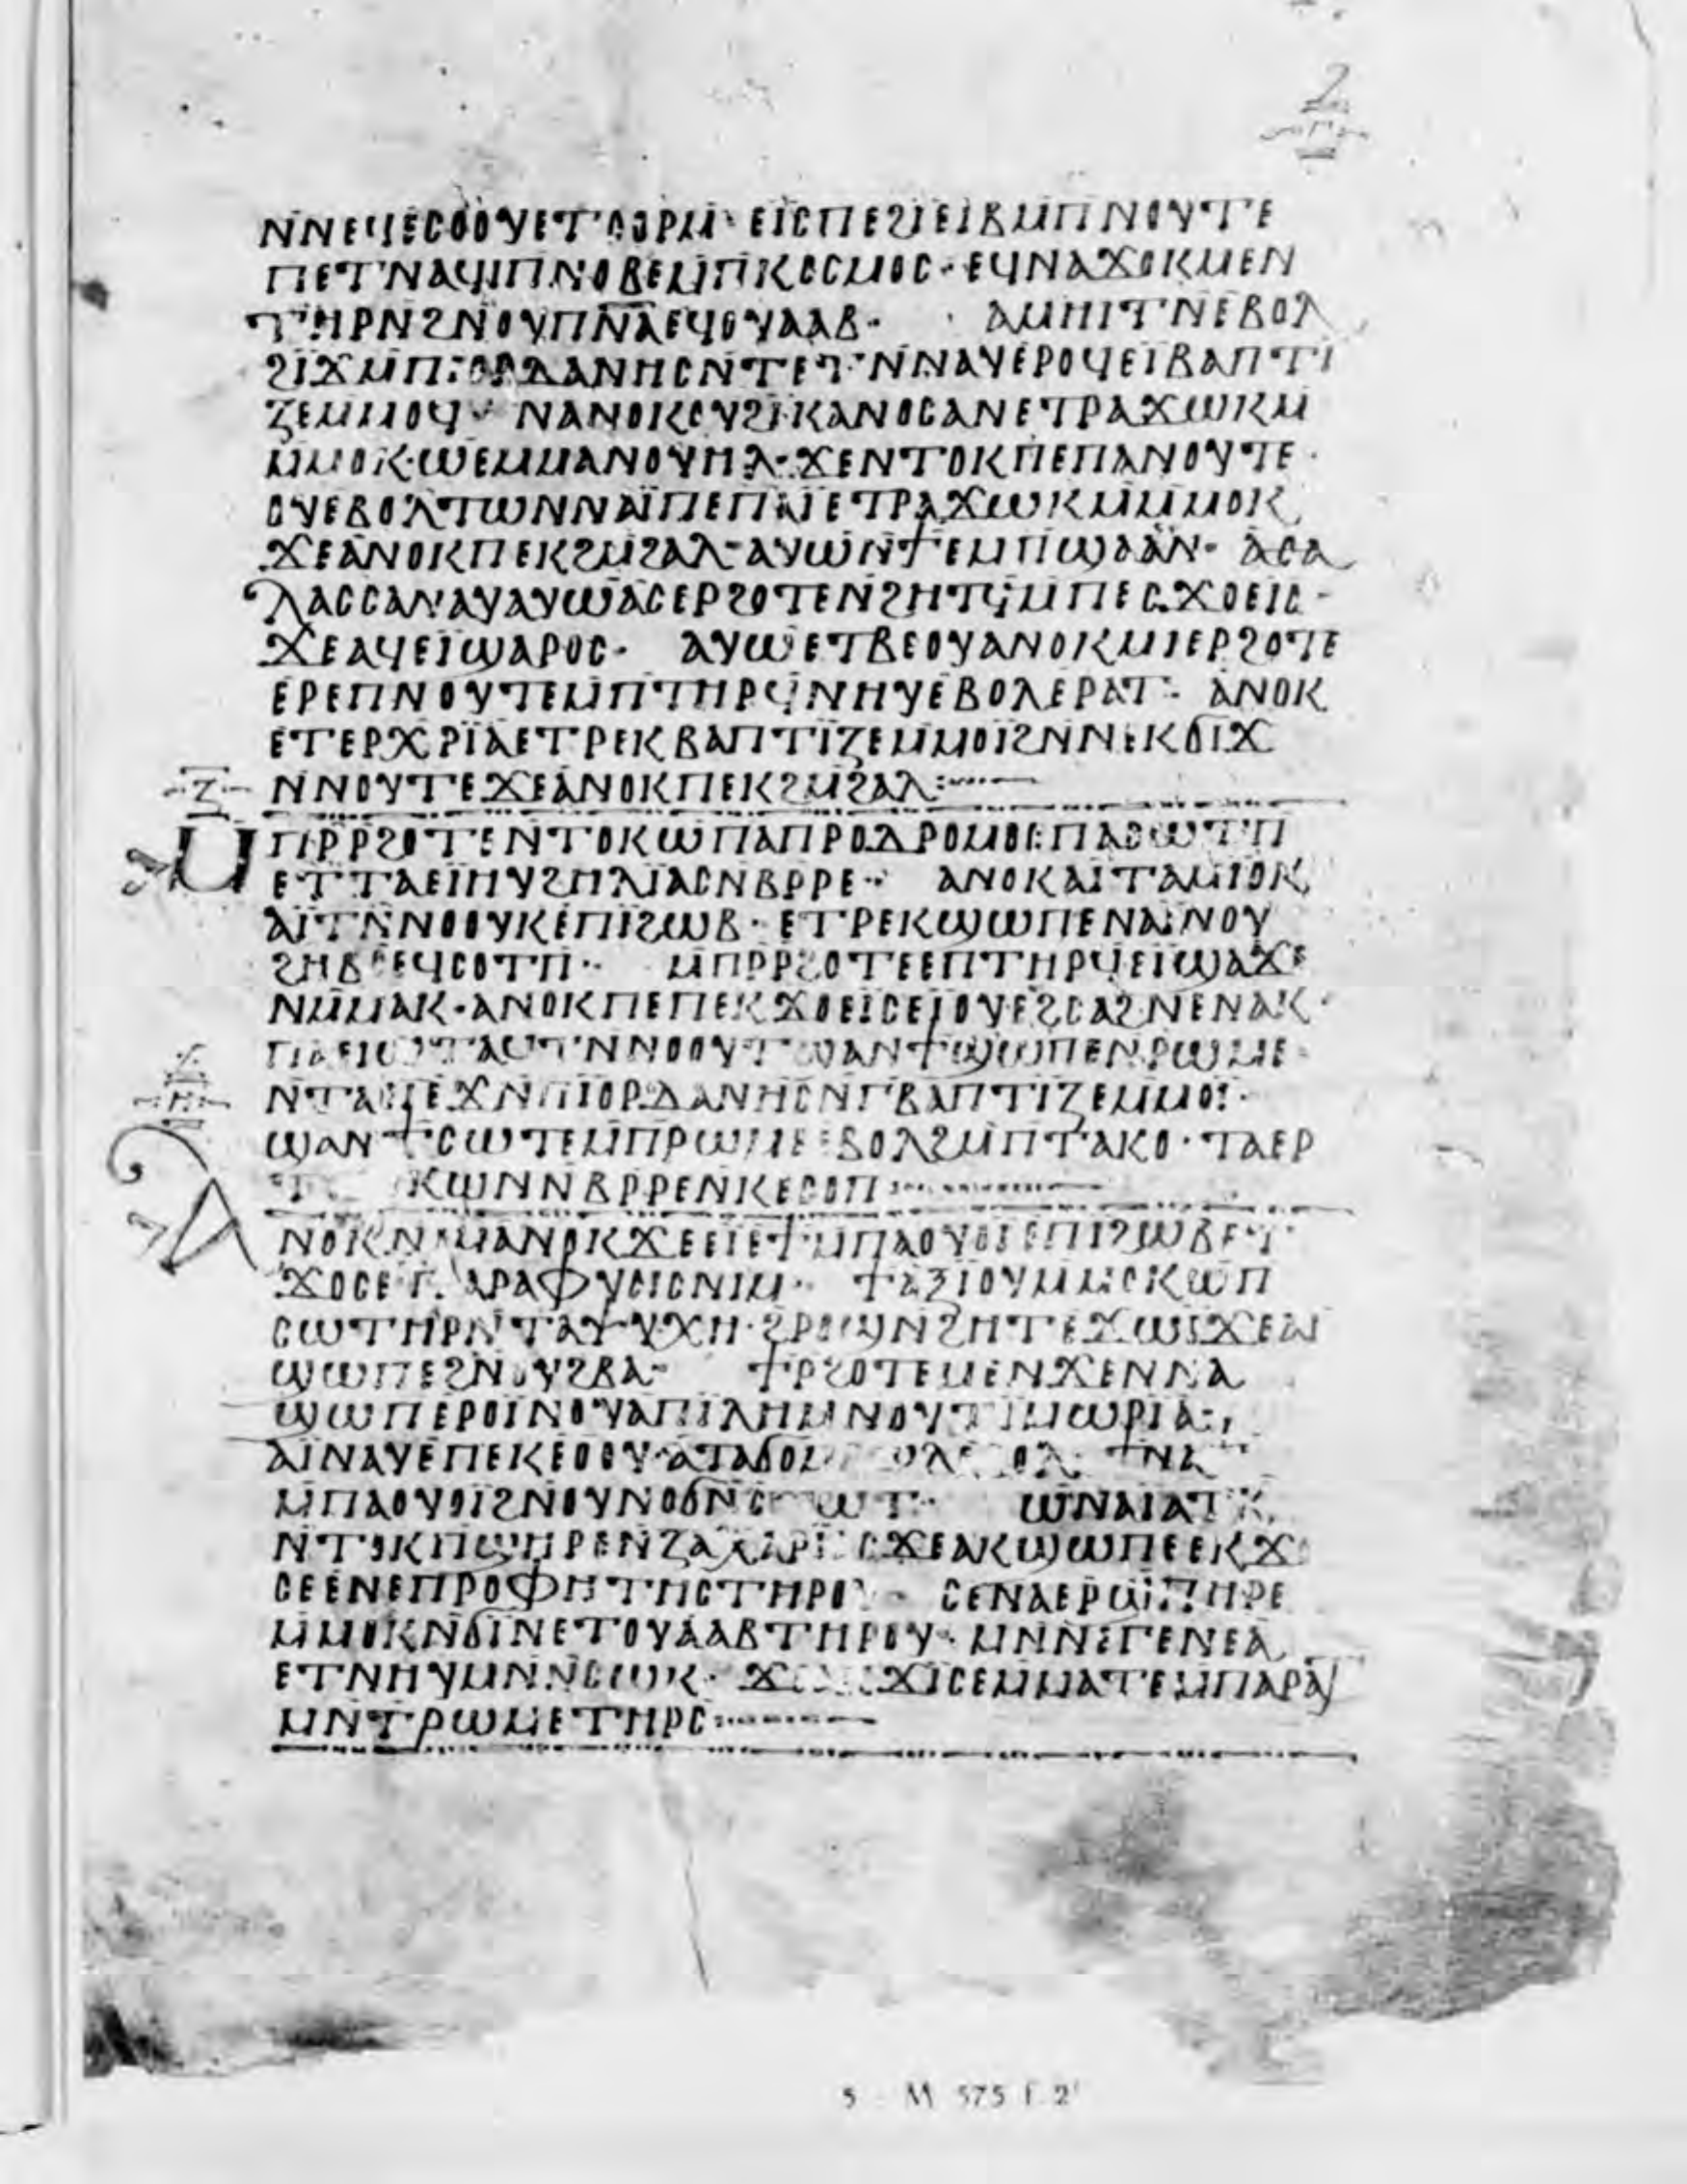 2
ⲅ
ⲛⲛⲉϥⲉⲥⲟⲟⲩ ⲉⲧⲥⲟⲣⲙ· ⲉⲓⲥ ⲡⲉϩⲓⲉⲓⲃ ⲙⲡⲛⲟⲩⲧⲉ
ⲡⲉⲧⲛⲁϥⲓ ⲡⲛⲟⲃⲉ ⲙⲡⲕⲟⲥⲙⲟⲥ· ⲉϥⲛⲁϫⲟⲕⲙⲉⲛ
ⲧⲏⲣⲛ ϩⲛ ⲟⲩⲡⲛ̅ⲁ̅ ⲉϥⲟⲩⲁⲁⲃ· ⲁⲙⲏⲓⲧⲛ ⲉⲃⲟⲗ
ϩⲓϫⲙ ⲡⲓⲟⲣⲇⲁⲛⲏⲥ ⲛⲧⲉⲧⲛⲛⲁⲩ ⲉⲣⲟϥ ⲉⲓⲃⲁⲡⲧⲓ
ⲍⲉ ⲙⲙⲟϥ· ⲛⲁⲛⲟⲕ ⲟⲩϩⲓⲕⲁⲛⲟⲥ ⲁⲛ ⲉⲧⲣⲁϫⲱⲕⲙ
ⲙⲙⲟⲕ· ⲱ ⲉⲙⲙⲁⲛⲟⲩⲏⲗ· ϫⲉ ⲛⲧⲟⲕ ⲡⲉ ⲡⲁⲛⲟⲩⲧⲉ·
ⲟⲩⲉⲃⲟⲗ ⲧⲱⲛ ⲛⲁⲓ̈ ⲡⲉ ⲡⲁⲓ ⲉⲧⲣⲁϫⲱⲕⲙ ⲙⲙⲟⲕ
ϫⲉ ⲁⲛⲟⲕ ⲡⲉⲕϩⲙϩⲁⲗ· ⲁⲩⲱ ⲛϯⲉⲙⲡϣⲁ ⲁⲛ· ⲁⲑⲁ
ⲗⲁⲥⲥⲁ ⲛⲁⲩ ⲁⲩⲱ ⲁⲥⲉⲣϩⲟⲧⲉ ⲛϩⲏⲧϥ ⲙⲡⲉⲥϫⲟⲉⲓⲥ·
ϫⲉ ⲁϥⲉⲓ ϣⲁⲣⲟⲥ· ⲁⲩⲱ ⲉⲧⲃⲉⲟⲩ ⲁⲛⲟⲕ ⲙⲓⲉⲣϩⲟⲧⲉ
ⲉⲣⲉ ⲡⲛⲟⲩⲧⲉ ⲙⲡⲧⲏⲣϥ ⲛⲏⲩ ⲉⲃⲟⲗ ⲉⲣⲁⲧ· ⲁⲛⲟⲕ
ⲉⲧⲉⲣⲭⲣⲓ̈ⲁ ⲉⲧⲣⲉⲕⲃⲁⲡⲧⲓⲍⲉ ⲙⲙⲟⲓ̈ ϩⲛ ⲛⲉⲕϭⲓϫ
ⲛⲛⲟⲩⲧⲉ ϫⲉ ⲁⲛⲟⲕ ⲡⲉⲕϩⲙϩⲁⲗ:
ⲍ
ⲙⲡⲣⲣϩⲟⲧⲉ ⲛⲧⲟⲕ ⲱ ⲡⲁⲡⲣⲟⲇⲣⲟⲙⲟⲥ ⲡⲁⲥⲱⲧⲡ
ⲉⲧⲧⲁⲉⲓⲏⲩ ϩⲏⲗⲓⲁⲥ ⲛⲃⲣⲣⲉ· ⲁⲛⲟⲕ ⲁⲓⲧⲁⲙⲓⲟⲕ
ⲁⲓⲧⲛⲛⲟⲟⲩⲕ ⲉⲡⲓϩⲱⲃ· ⲉⲧⲣⲉⲕϣⲱⲡⲉ ⲛⲁⲓ ⲛⲟⲩ
ϩⲏⲃⲥ ⲉϥⲥⲟⲧⲡ· ⲙⲡⲣⲣϩⲟⲧⲉ ⲉⲡⲧⲏⲣϥ ⲉⲓϣⲁϫⲉ
ⲛⲙⲙⲁⲕ· ⲁⲛⲟⲕ ⲡⲉ ⲡⲉⲕϫⲟⲉⲓⲥ ⲉⲓⲟⲩⲉϩⲥⲁϩⲛⲉ ⲛⲁⲕ·
ⲡⲁⲉⲓⲱⲧ ⲁϥⲧⲛⲛⲟⲟⲩⲧ ϣⲁⲛϯϣⲱⲡⲉ ⲛⲣⲱⲙⲉ·
ⲛⲧⲁⲉⲓ ⲉϫⲛ ⲡⲓⲟⲣⲇⲁⲛⲏⲥ ⲛⲅⲃⲁⲡⲧⲓⲍⲉ ⲙⲙⲟⲓ·
ϣⲁⲛϯⲥⲱⲧⲉ ⲙⲡⲣⲱⲙⲉ ⲉⲃⲟⲗ ϩⲙ ⲡⲧⲁⲕⲟ· ⲧⲁⲉⲣ
ⲕⲱⲛ ⲛⲃⲣⲣⲉ ⲛⲕⲉⲥⲟⲡ
ⲏ
ⲁⲛⲟⲕ ⲛⲓⲙ ⲁⲛⲟⲕ ϫⲉ ⲉⲓⲉϯ ⲙⲡⲁⲟⲩⲟⲓ ⲉⲡⲓϩⲱⲃ ⲉⲧ
ϫⲟⲥⲉ ⲡⲁⲣⲁ ⲫⲩⲥⲓⲥ ⲛⲓⲙ· ϯⲁⲝⲓⲟⲩ ⲙⲙⲟⲕ ⲱ ⲡ
ⲥⲱⲧⲏⲣ ⲛⲧⲁⲯⲩⲭⲏ· ϩⲣⲟϣ ⲛϩⲏⲧ ⲉϫⲱⲓ ϫⲉ
ϣⲱⲡⲉ ϩⲛ ⲟⲩϩⲃⲁ· ϯⲣϩⲟⲧⲉ ⲙⲉⲛ ϫⲉ ⲛⲛⲁ
ϣⲱⲡⲉ ⲉⲣⲟⲓ̈ ⲛⲟⲩⲁⲡⲓⲗⲏ ⲙⲛ ⲟⲩⲧⲓⲙⲱⲣⲓⲁ·
ⲁⲓⲛⲁⲩ ⲉⲡⲉⲕⲉⲟⲟⲩ ⲁⲧⲁϭⲟⲙ
ⲙⲡⲁⲟⲩⲟⲓ ϩⲛ ⲟⲩⲛⲟϭ ⲛ ⲱ ⲛⲁⲓⲁⲧⲕ
ⲛⲧⲟⲕ ⲡϣⲏⲣⲉ ⲛⲍⲁⲭⲁⲣⲓⲁⲥ ϫⲉ ⲁⲕϣⲱⲡⲉ ⲉⲕϫⲟ
ⲥⲉ ⲉⲛⲉⲡⲣⲟⲫⲏⲧⲏⲥ ⲧⲏⲣⲟⲩ· ⲥⲉⲛⲁⲉⲣϣⲡⲏⲣⲉ
ⲙⲙⲟⲕ ⲛϭⲓ ⲛⲉⲧⲟⲩⲁⲁⲃ ⲧⲏⲣⲟⲩ· ⲙⲛ ⲛⲉⲅⲉⲛⲉⲁ
ⲉⲧⲛⲏⲩ ⲙⲛⲛⲥⲱⲕ· ϫⲓⲥⲉ ⲙⲙⲁⲧⲉ ⲙⲡⲁⲣⲁ
ⲙⲛⲧⲣⲱⲙⲉ ⲧⲏⲣⲥ:
5 M 575 f. 2